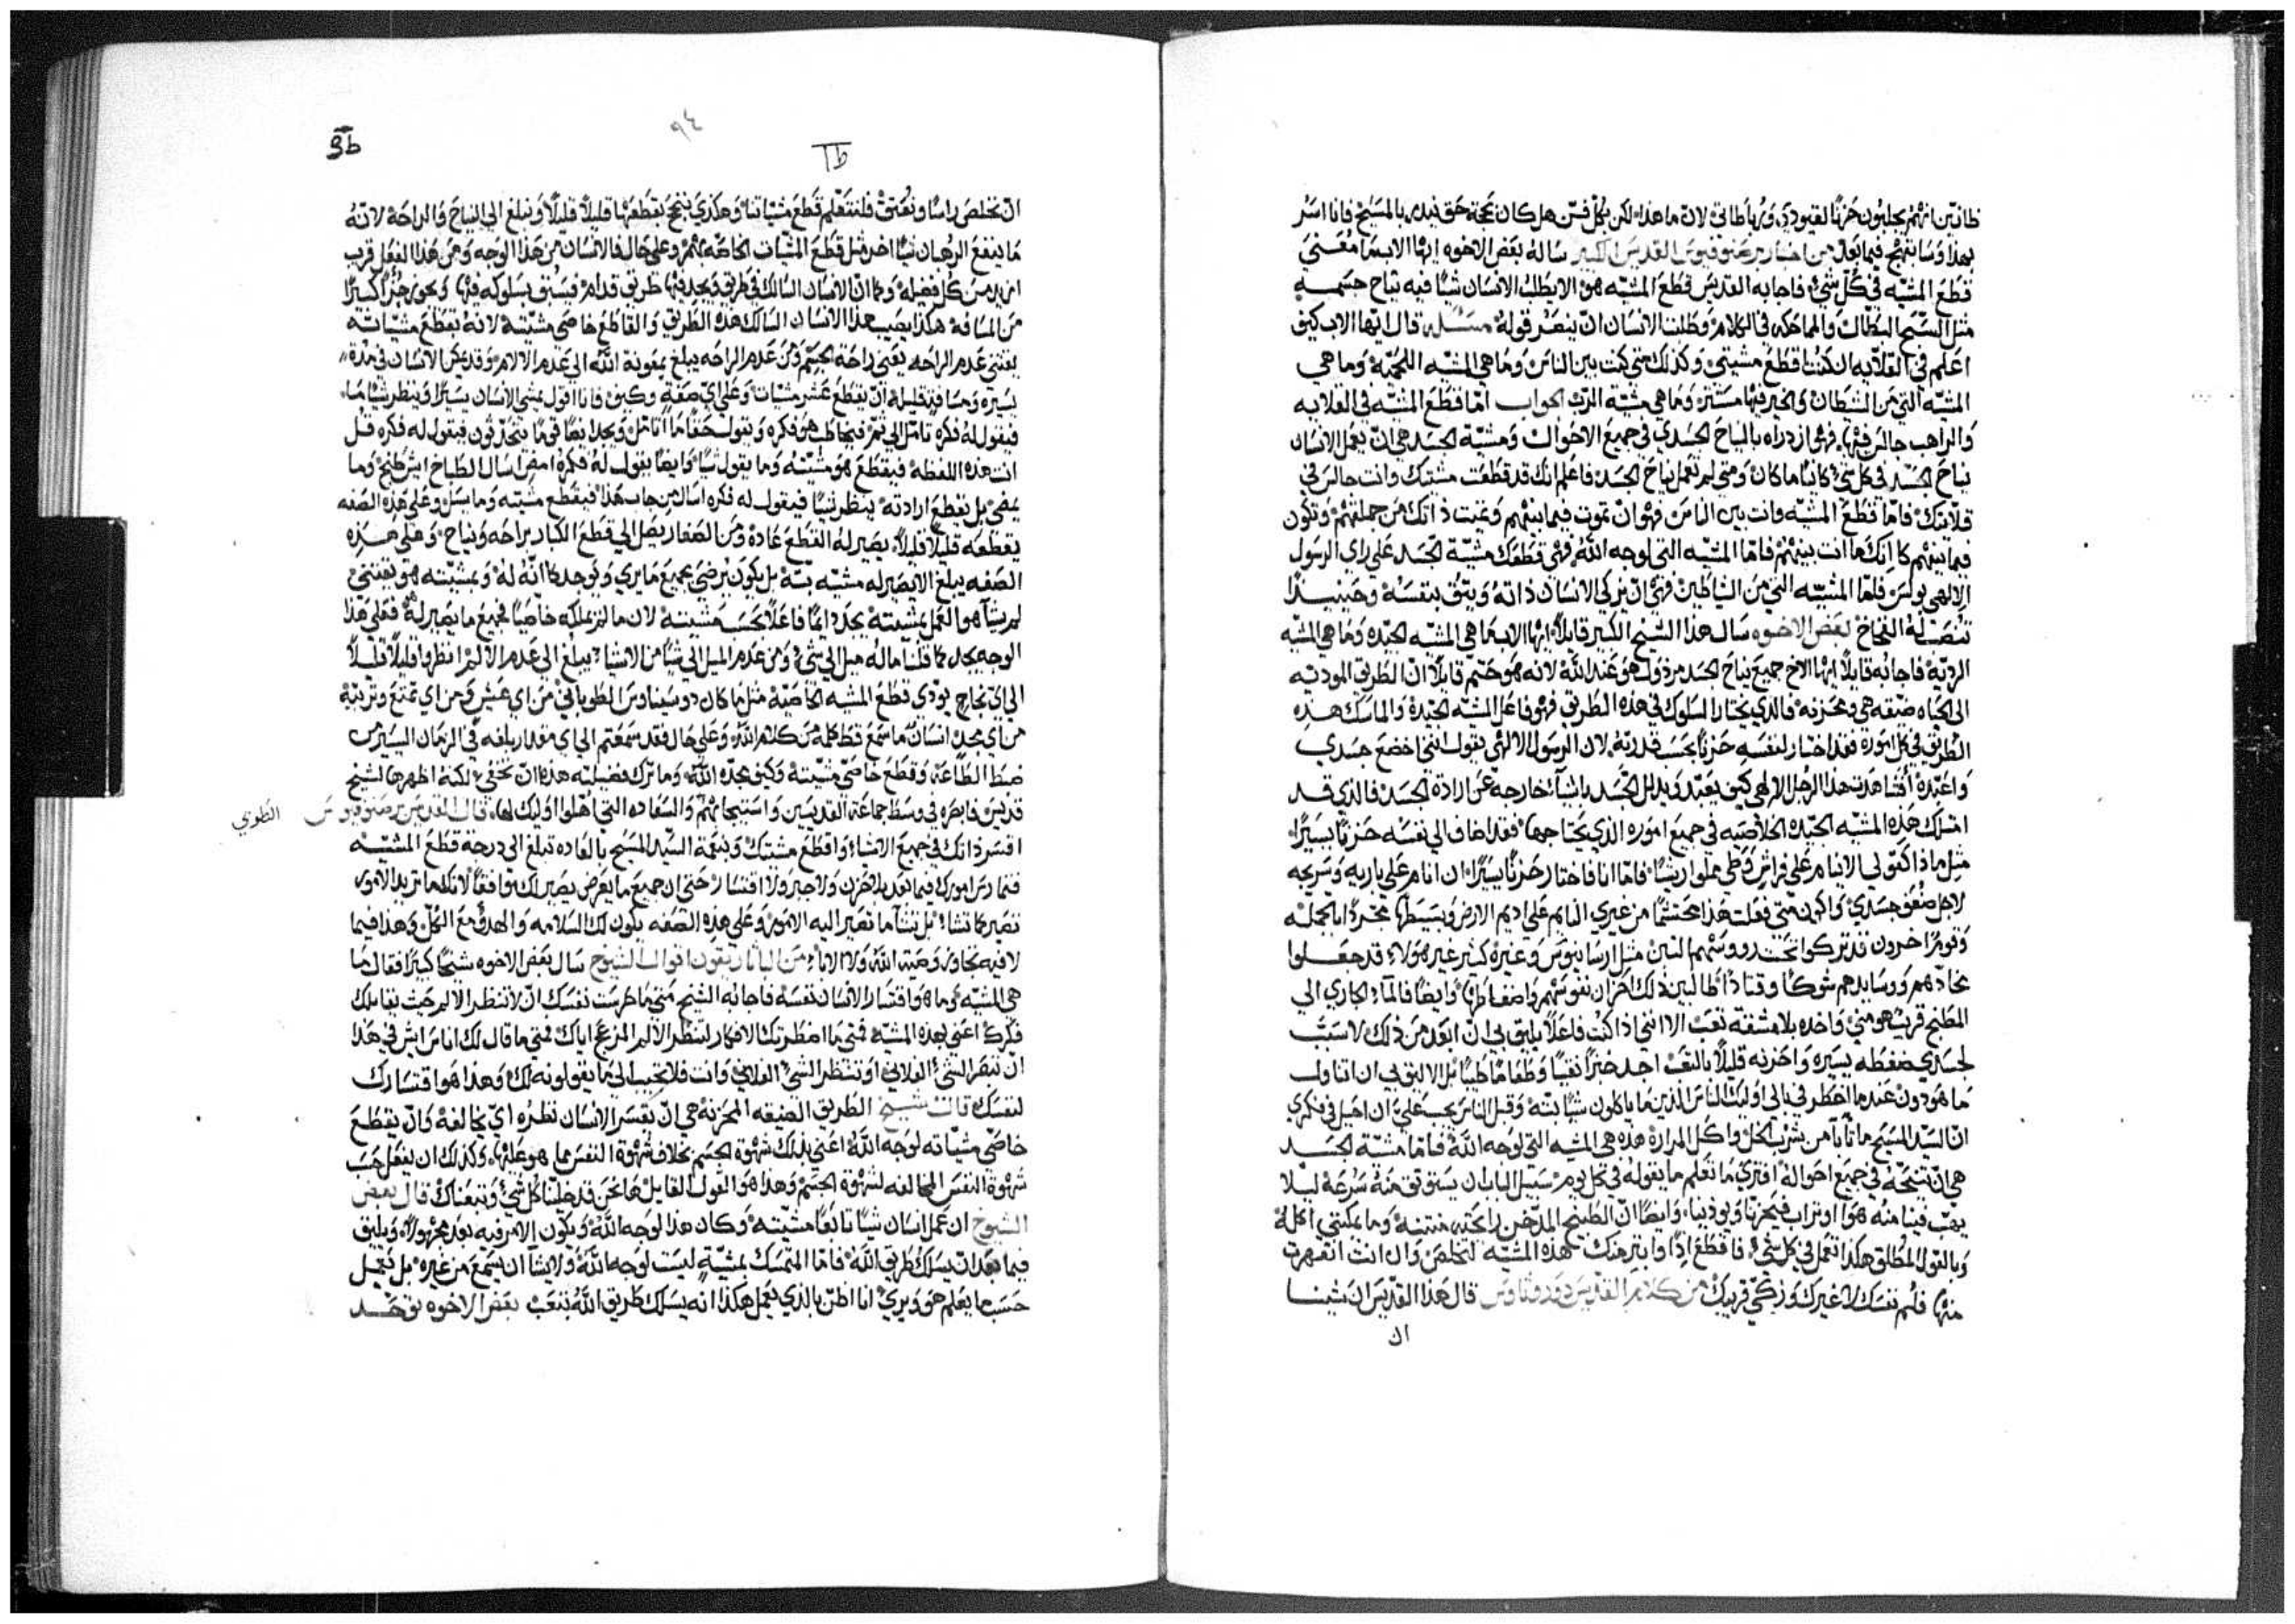 ظانين انهم يجلبون حزنًا لقيودي، وربّاطاتي لانّ ما هذا، لكن بكل فنّ هل كان بحجة حق نيدى بالمسيح فانا اسرّ
بهذا وسابتهج فيما بعد من اخبار برصنوفيوس القديس الكبير ساله بعض الاخوه ايها الاب ما معنى
قطع المشيّه في كلّ شيء، فاجابه القديس قطع المشيّه هو الا يطلب الانسان شيًا فيه نياح جسمه
مثل السبح البطّال والمماحكه في الكلام وطلب الانسان انّ ينصر قوله مسئله قال ايها الاب كيف
اعلم في القلايه ان كنت اقطع مشيتي وكذلك متى كنت بين الناس وما هي المشيه اللحميّه وما هي
المشيّه التي من الشيطان والخير فيها مستتر وما هي مشيّه الرب الجواب امّا قطع المشيّه في القلايه
والراهب جالس فيها، فهو ازدراه بالنياح الجسدي في جميع الاحوال ومشيّة الجسد هي انّ يعمل الانسان
نياح الجسد في كل شيء كاينًا ما كان ومتى لم تعمل نياح الجسد فاعلم انك قد قطعت مشيتك وانت جالس في
قلايتك فامّا قطع المشيّه وانت بين الناس فهو ان تموت فيما بينهم وتميت ذاتك من جملتهم وتكون
فيما بينهم كانك ما انت بينهم فامّا المشيّه التي لوجه الله فهي قطعك مشيّة الجسد على راي الرسول
الالهي بولس فامّا المشيّه التي من الشياطين فهي انّ يزكي الانسان ذاته ويثق بنفسه وحينيذًا
تنصب له الفخاخ بعض الاخوه سال هذا الشيخ الكبير قايلًا ايها الاب ما هي المشيّه الجيّده وما هي المشيّه
الرديّه فاجابه قايلًا ايها الاخ جميع نياح الجسد مرذول هو عند الله لانه هو حتّم قايلًا انّ الطريق الموديه
الى الحياه ضيّقه هي ومحزنه فالذي يختار السلوك في هذه الطريق فهو فاعل المشيّه الجيّده والماسك هذه
الطريق في كل اموره فقد اختار لنفسه حزنًا بحسب قدرته لان الرسول الالهي يقول انني اخضع جسدي
واعبّده افشاهدت هذا الرجل الالهي كيف يعبّد ويذلل الجسد باشياء خارجه عن ارادة الجسد فالذي قد
امتلك هذه المشيّه الجيّده الخلاصيّه في جميع اموره الذي يحتاجها فقد اضاف الى نفسه حزنًا يسيرًا
مثل ماذا اكقولي لا انام على فراش وطي مملوا ريشًا، فامّا انا فاختار حزنًا يسيرًا ان انام على باريه وشريجه
لاجل ضعف جسدي واكون متى فعلت هذا محتشمًا من غيري النايم على اديم الارض وبسيطها مجردًا بالجمله
وقومًا اخرون قد تركوا تحت روسهم لبن مثل ارسانيوس وغيره كثير غير هولاء قد جعلوا
مخادهم ورسايدهم شوكًا وقتادًا طالبين ذلك احزان نفوسهم واضغاطها وايضًا فالماء الجاري الى
المطبخ قريب هو مني واخذه بلا مشقه تعب الا انني اذا كنت فاعلًا يليق بي انّ ابعد من ذلك لاسبب
لجسدي ضغطه يسيره واحزنه قليلًا بالتعب اجد خبزًا نقيًا وطعامًا طيبًا بل الاليق بي ان اتناول
ما هو دون عندما اخطر في بالي اوليك الناس الذين ما ياكلون شيًا بتّه وقبل الناس يجب عليّ ان اجيل في فكري
انّ السيّد المسيح ما تابا من شرب الخل واكل المراره هذه هي المشيه التي لوجه الله فامّا مشيّة الجسد
هي انّ تنيحه في جميع احواله افترى ما تعلم ما يقوله في كل يوم سبيل الباب ان يستوثق منه سرعة ليلا
يهب فينا منه هوا او تراب فيحزنا ويوذينا، وايضًا انّ الطبيخ المدخن رايحته منتنه وما يمكنني اكله
وبالقول المطلق هكذا تعمل في كل شيء، فاقطع اذًا وابتر منك هذه المشيّه لتخلص وال انت انقهرت
منها فلم نفسك لا غيرك وزكّي قريبك من كلام القديس دوروثاوس قال هذا القديس ان شينا
ان
٩٤
Tb
3b
انّ نخلص راسًا ونعتق فلنتعلم قطع مشياتنا وهكذي ينجح بقطعها قليلًا قليلًا ونبلغ الى النياح والراحة لانّه
ما ينفع الرهبان شيًا اخر مثل قطع المشيات الخاصّه بهم وعلى حال فالانسان من هذا الوجه ومن هذا الفعل قرب
ازيد من كل فضيله وكما انّ الانسان السالك في طريق ويجد فيها طريق قدام فيسبق بسلوكه فيها ويحوز جزًا كبيرًا
من المسافه هكذا يصيب هذا الانسان السالك هذه الطريق والقاطع خاصي مشيّته لانه بقطع مشيّاته
يقتني عدم الراحه يعني راحة الجسم ومن عدم الراحه يبلغ بمعونة الله الى عدم الالام وقد يمكن الانسان في مدة
يسيره ومسافه قليله انّ يقطع عشر مشيّات وعلى اي صفه وكيف فانا اقول يمشي الانسان يسيرًا وينظر شيًا ما
فيقول له فكره تامّل الى ثمّ فيخاطب هو فكره ويقول حقًا ما اتامّل ويجد ايضًا قومًا يتحدثون فيقول له فكره قل
انت هذه اللفظه فيقطع هو مشيّته وما يقول شيًا وايضًا يقول له فكره امض اسال الطباخ ايش طبخ وما
يمضي بل يقطع ارادته ينظر شيًا فيقول له فكره اسال من جاب هذا فيقطع مشيّته وما يسل وعلى هذه الصفه
يقطعه قليلًا قليلًا، يصير له القطع عادة ومن الصغار يصل الى قطع الكبار براحه ونياح وعلى هذه
الصفه يبلغ الا يصير له مشيّه بتّه بل يكون يرضي بجميع ما يري ويوجد كانّه له وبمشيّته هو يقتني
لم يشا هو العمل بمشيّته يجد دايمًا فاعلًا بحسب مشيّته لان ما لم يملكه خاصيًا فجميع ما يصير له هو فعلى هذا
الوجه يجد كما قلنا ما له ميل الى شيء ومن عدم الميل الى شيًا من الاشيا، يبلغ الى عدم الالم انظروا قليلًا قليلًا
الى اي نجاح يودى قطع المشيه الخاصّيه مثلما كان دوسيثاوس الطوباني من اي عيش ومن اي تمتع وتربيّة
من اي مجد انسان ما سمع قط كلمه من كلام الله وعلى حال فقد سمعتم الى اي مقدار بلغه في الزمان اليسير من
ضبط الطاعه وقطع خاصّي مشيّته وكيف مجّده الله وما ترك فضيلته هذه انّ تخفى، لكنه اظهرها لشيخ
قديس فابصره في وسط جماعة القديسين واستبيجانهم والسعاده التي اهلوا اوليك لها، قال القديس برصنوفيوس
الطوبي
اقسر ذاتك في جميع الاشياء واقطع مشيتك وبنعمة السيّد المسيح بالعاده تبلغ الى درجة قطع المشيّه
فتمارس امورك فيما بعد بلا حزن ولا جبر ولا اقتسار حتى ان جميع ما يعرض يصير لك موافقًا لانك ما تريد الامور
تصير كما تشاء، بل تشآ ما تصير اليه الامور وعلى هذه الصفه يكون لك السلامه والهدو مع الكلّ وهذا فيما
لا فيه تجاوز وصية الله ولا الاباء من البارتيقون اقوال الشيوخ سال بعض الاخوه شيخًا كبيرًا فقال ما
هي المشيّه وما هو اقتسار الانسان نفسه فاجابه الشيخ متى ما حرست نفسك انّ لا تنظر الالم حيث يقابلك
فكرك اعني بهذه المشيّه فمتى ما اضطرتك الافكار لتنظر الالم المزعج اياك فمتى ما قال لك اناس ايش في هذا
ان تبصر الشيء الفلاني او تنتظر الشيء الفلاني وانت فلا تجيب الى ما يقولونه لك وهذا هو اقتسارك
لنفسك، قال شيخ الطريق الضيقه المحزنة هي انّ يقسر الانسان نظره اي يخالفه وانّ يقطع
خاصّي مشيّاته لوجه الله اعني بذلك شهوة الجسم بخلاف شهوة النفس مما هو عليها، وكذلك ان يفعل حسب
شهوة النفس المخالفه لشهوة الجسم وهذا هو القول القايل ها نحن قد خلينا كل شيء وتبعناك قال بعض
الشيوخ ان عمل انسان شيًا تابعًا مشيّته وكان هذا لوجه الله ويكون الامر فيه بعد مجهولًا، ويليق
فيما بعد انّ يسلك طريق الله، فامّا المتمسك بمشيّةٍ ليست لوجه الله ولا يشآ ان يسمع من غيره بل يعمل
حسب ما يعلم هو ويري انا اظنّ بالذي يعمل هكذا انه يسلك طريق الله بتعب بعض الاخوه توحّد